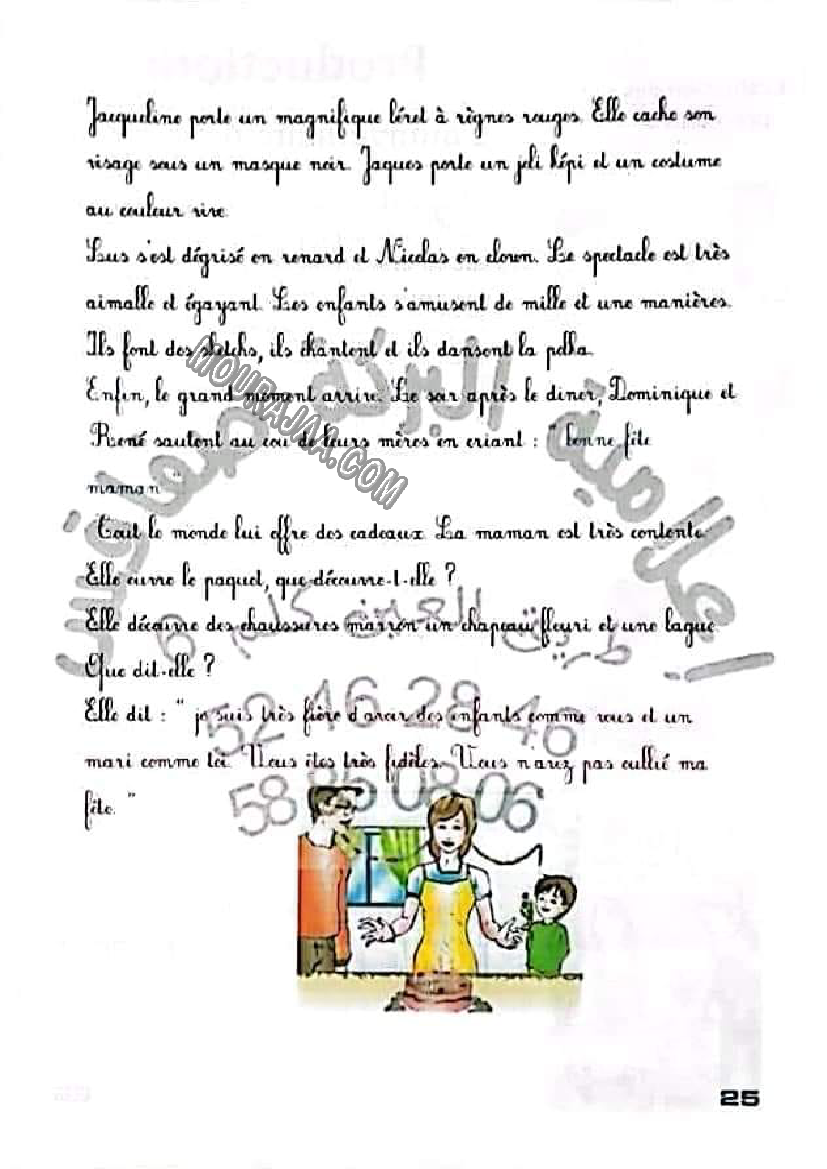 Jacqueline porte un magnifique béret à règnes rouges. Elle cache son
visage sous un masque noir. Jaques porte un joli képi et un costume
au couleur vive.
Lus s'est dégrisé en renard et Nicolas en clown. Le spectacle est très
aimable et égayant. Les enfants s'amusent de mille et une manières.
Ils font des sketchs, ils chantent et ils dansent la polka.
Enfin, le grand moment arrive. Le soir après le diner, Dominique et
René sautent au cou de leurs mères en criant : " bonne fête
maman "
Tout le monde lui offre des cadeaux. La maman est très contente.
Elle ouvre le paquet, que découvre-t-elle ?
Elle découvre des chaussures marron un chapeau fleuri et une bague.
Que dit-elle ?
Elle dit : " je suis très fière d'avoir des enfants comme vous et un
mari comme toi. Vous êtes très fidèles. Vous n'avez pas oublié ma
fête. "
MOURAJAA.COM
طريق العين كلم 6
52 46 28 46
58 86 08 06
25